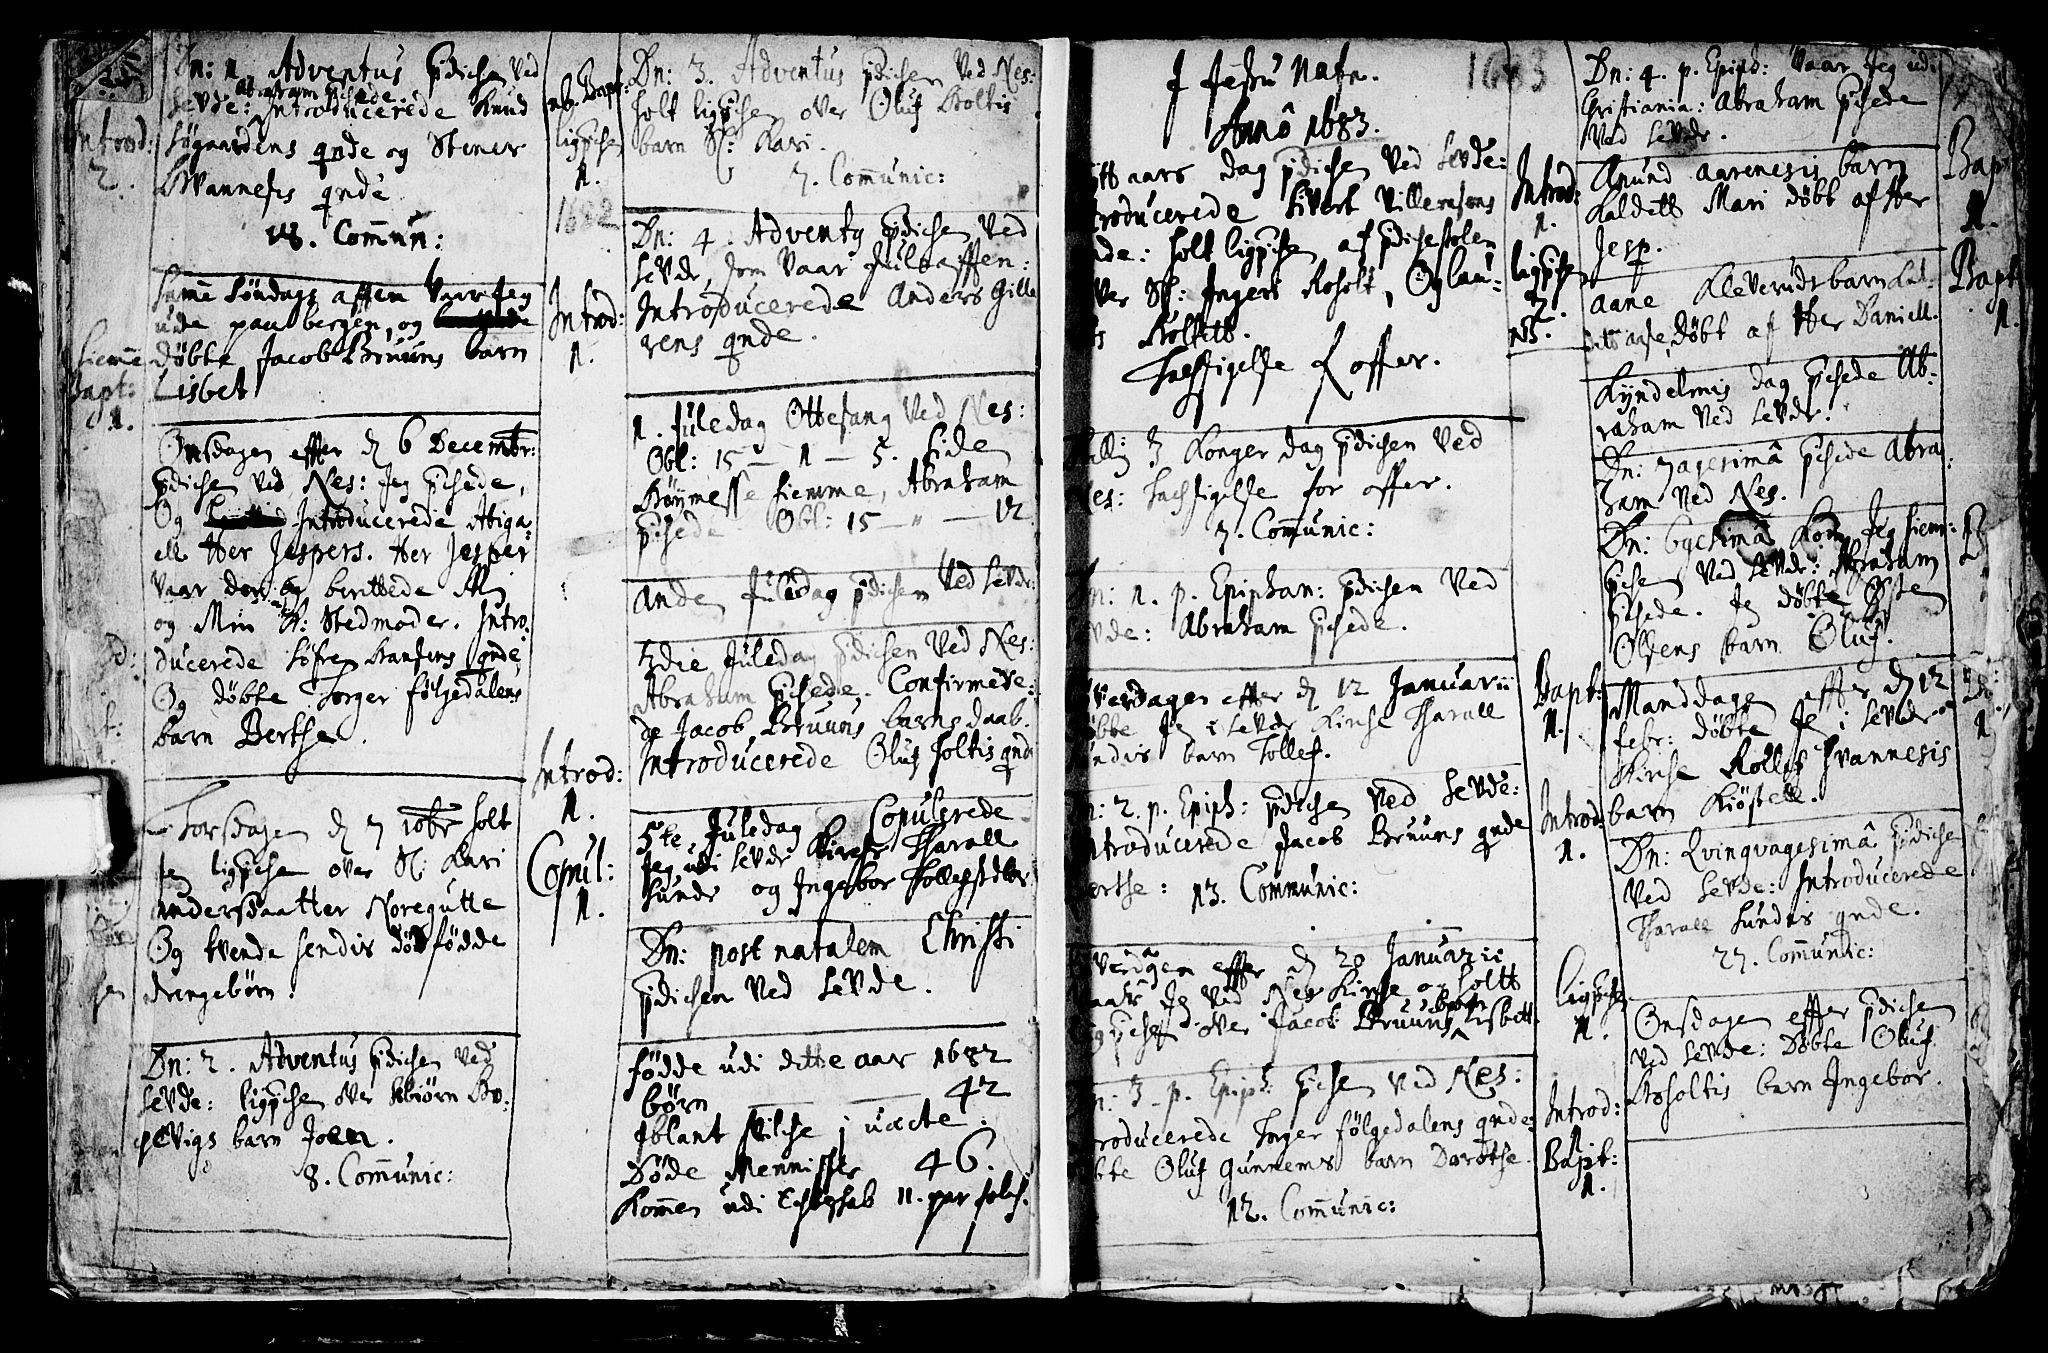 Dn: 1. Adventus pdichen ved
Abraham pchede
Sevde: Introducerede Knud
Introd: Søgaardens qnde og Stener
2. Kvannesis qnde
18. Commun:
Samme Søndags afften Vaar Jeg
ude paa bergen, og
hiemme døbte Jacob Bruuns barn
Bapt: Lisbet
1.
Onsdagen effter d 6 Decembr:
pdichen ved Nes: Jeg pchede,
Og Introducerede Abiga-
ell Her Jespers. Her Jesper
Vaar der og berettede
og Min Stedmoder. Intro-
ducerede Søfre Hansens qnde,
Og døbte Torger følgedalens
barn Berthe.
Torsdagen d 7 10br holt
Jeg ligpchen over Sl: Kari
Andersdaatter Noregutte
Og tvende hendis dødfødde
drengebørn.
Dn: 2. Adventus pdichen ved
Sevde: ligpchen over Asbiørn Bo-
barn Joen.
8. Communic:
ligpchen
1.
1682
Introd:
1.
Introd:
1.
Copul:
1.
Dn: 3. Adventus pdichen ved Nes:
holt ligpchen over Oluf Holtis
barn Sl: Kari.
7. Communic:
Dn: 4. Adventus pdichen ved
Sevde, som Vaar Juleafften:
Introducerede Anders Gille
rens qnde.
1. Juledag Ottesang ved Nes:
Obl: 15 — 1 — 5. Siden
Høymesse hiemme, Abraham
pchede Obl: 15 — " — 12
Anden Juledag pdichen ved Sevde:
3die Juledag pdichen ved Nes:
Abraham pchede. Confirmere-
de Jacob Bruuns barns daab.
Introducerede Oluf holtis qnde
5te Juledag Copulerede
Jeg udi Sevde Kirche Tharall
Sunde og Ingebor Tollefsdtter
Dn: post natalem Christi
pdichen ved Sevde.
fødde udi dette aar 1682
børn — — 42
Iblant hvilche j uæcte.
Døde Mennisker 46.
Kommen udi Echteskab 11. par folch.
J Jesu Nafn.
1683
Anno 1683.
aars dag pdichen ved Sevde:
Introducerede Sivert Villumsens
qnde: holt ligpchen af pdichestolen
over Sl: Ingeri Roholt, Og
Holtett.
Tachsigelse f offer.
3 Konger dag pdichen ved
Nes: Tachsigelse for offer.
7. Communic:
Dn: 1. p. Epiphan: pdichen ved
Sevde: Abraham pchede.
dagen effter d 12 Januarii
døbte Jeg i Sevde Kirche Tharall
Sundis barn Tollef.
Dn: 2. p. Epiph: pdichen ved Sevde:
Introducerede Jacob Bruuns qnde
Berthe: 13. Communic:
effter d 20 Januarii
Jeg ved Nes Kirche og holtt
ligpchen over Jacob Bruuns barn Lisbett.
Dn: 3. p. Epiph: pchen ved Nes:
Introducerede Torger følgedalens qnde:
døbte Oluf Gunnems barn Dorothe.
12. Communic:
Introd:
1.
ligpchen
2.
Bapt:
1.
Introd:
1.
ligpchen
1.
Introd:
1
Bapt:
1.
Dn: 4. p. Epiph: Vaar Jeg udi
Christiania: Abraham pchede
ved Sevde.
Anund Aarenesis barn
Kaldett Mari døbt af Her
Jesp.
Aane Kleverudsbarn
Aase, døbt af Her Daniell.
Kyndelmis dag pchede Ab-
raham ved Sevde.
Dn: 7agesimâ pchede Abra-
ham ved Nes.
Dn: 6gesimâ Kom Jeg hiem:
pchen ved Sevde: Abraham
pchede. Jeg døbte
Olsens barn Oluf.
Manddagen effter d 12
febr: døbte Jeg i Sevde
Kirche Rollef Hvannesis
barn Kiøstell.
Dn: Qvinqvagesimâ pdichen
ved Sevde: Introducerede
Tharall Sundis qnde.
27. Communic:
Onsdagen effter pdichen
ved Sevde: Døbte Oluf
Roholtis barn Ingebor.
Bapt
1.
Bapt
1.